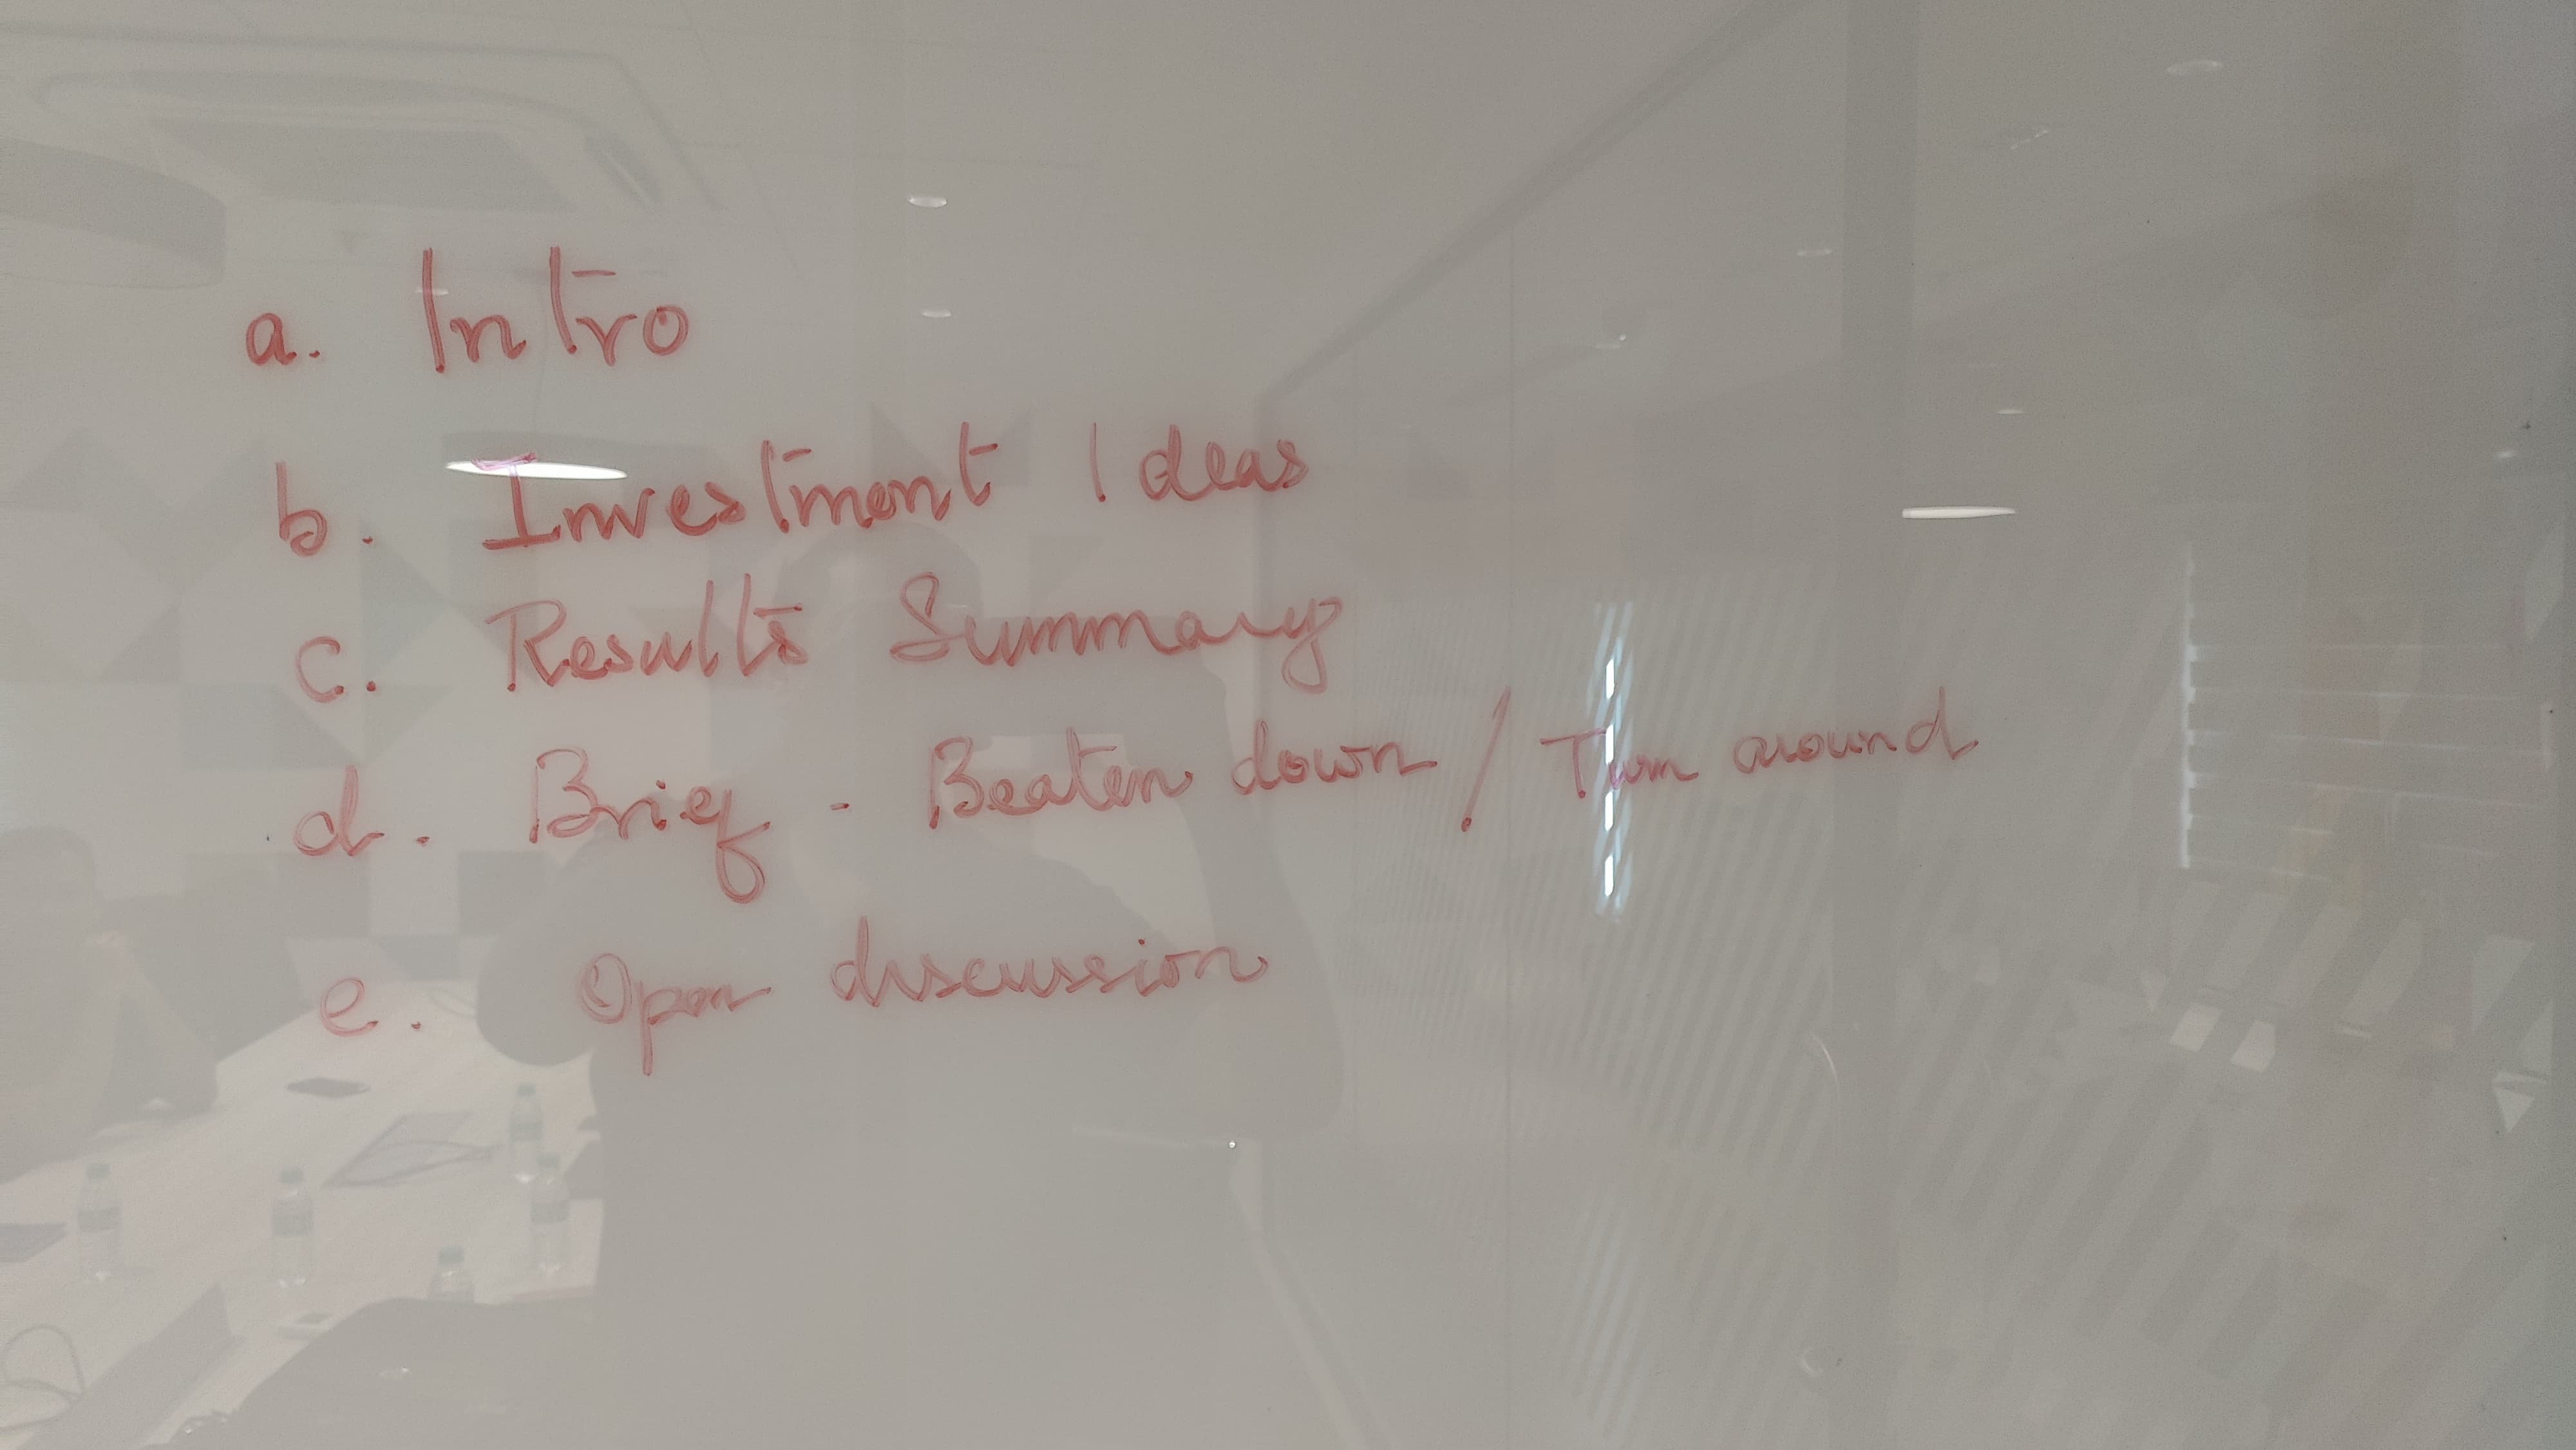 a. Intro
b. Investment Ideas
c. Results Summary
d. Brief - Beaten down / Turn around
e. Open discussion